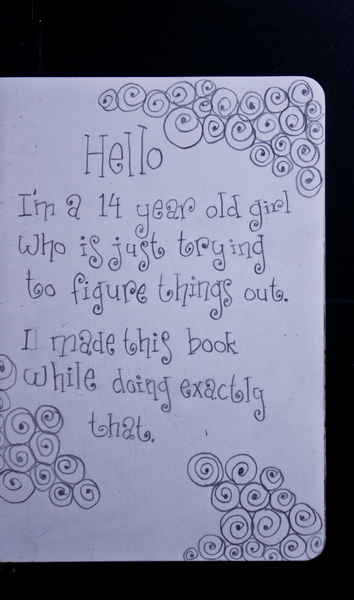 Hello
I'm a 14 year old girl
who is just trying
to figure things out.
I made this book
while doing exactly
that.